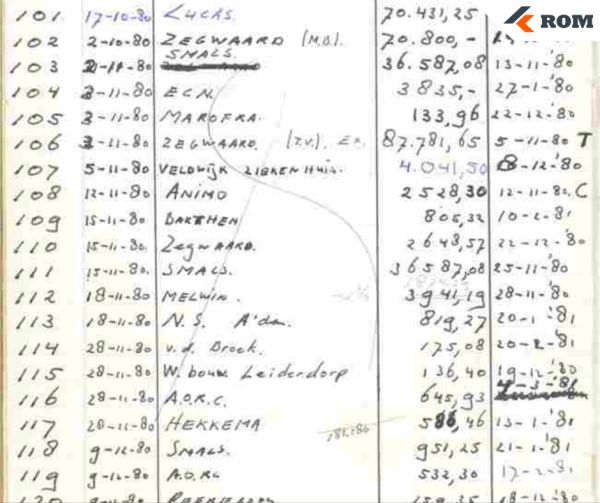 ROM
101 17-10-80 LUCAS. 70.431,25
102 2-10-80 ZEGWAARD (M.B). 70.800,-
103 2-11-80 SMALS. 36.587,08 13-11-'80
104 3-11-80 ECN. 3835,- 27-1-'80
105 3-11-80 MAROFRA. 133,96 22-12-'80
106 3-11-80 ZEGWAARD. (T.V.). 87.781,65 5-11-80 T
107 5-11-80 VELDWIJK ZIEKENHUIS. 4.041,50 8-12-'80
108 12-11-80 ANIMO 2528,30 12-11-'80. C
109 15-11-80 BARTHEN 805,32 10-2-81
110 15-11-80. Zegwaard. 2648,57 22-12-'80
111 15-11-80. SMALS. 36587,08 25-11-'80
112 18-11-80 MELWIN. 3941,19 28-11-'80
113 18-11-80 N.S. A'dam. 819,27 20-1-'81
114 28-11-80 v.d. Broek. 175,08 20-2-'81
115 28-11-80 W. bouw Leiderdorp 136,40 19-12-'80
116 28-11-80 A.O.R.C. 645,93 4-3-'81
117 28-11-80 HEKKEMA 586,46 13-1-'81
118 9-12-80 SMALS. 951,25 21-1-'81
119 9-12-80 A.O.RC 532,30 17-2-'81
120 9-12-80 159,35 18-12-'80